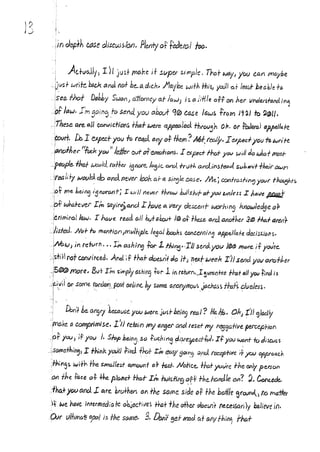 13
in depth case discussion. Plenty of federal too.
Actually, I'll just make it super simple. That way, you can maybe
just write back and not be a dick. Maybe with this, you'll at least be able to
see that Debby Swan, attorney at law, is a little off on her understanding
of law. I'm going to send you about 90 case laws from 1921 to 2011.
These are all convictions that were appealed through Ok. or federal appellate
court. Do I expect you to read any of them? Not really. I expect you to write
another "fuck you" letter out of emotions. I expect that you will do what most
people that would rather ignore logic and truth and instead submit their own
reality would do and never look at a single case. Me; contrasting your thoughts
of me being ignorant; I will never throw bullshit at you unless I have
of whatever I'm saying and I have a very descent working knowledge of
criminal law. I have read all but about 10 of these and another 20 that aren't
listed. Not to mention multiple legal books concerning appellate decisions.
Now, in return... I'm asking for 1 thing. I'll send you 100 more if you're
still not convinced. And if that doesn't do it, next week I'll send you another
500 more. But I'm simply asking for 1 in return. I guarantee that all you find is
civil or some random post online by some anonymous jackass that's clueless.
Don't be angry because you were just being real? Ha Ha. Oh, I'll gladly
make a compromise. I'll retain my anger and reset my negative perception
of you, if you 1. Stop being so fucking disrespectful. If you want to discuss
something, I think you'll find that I'm easy going and receptive if you approach
things with the smallest amount of tact. Notice that you're the only person
on the face of the planet that I'm twisting off the handle on? 2. Concede
that you and I are brothers on the same side of the battle ground, no matter
if we have intermediate objectives that the other doesn't necessarily believe in.
Our ultimate goal is the same. 3. Don't get mad at anything that